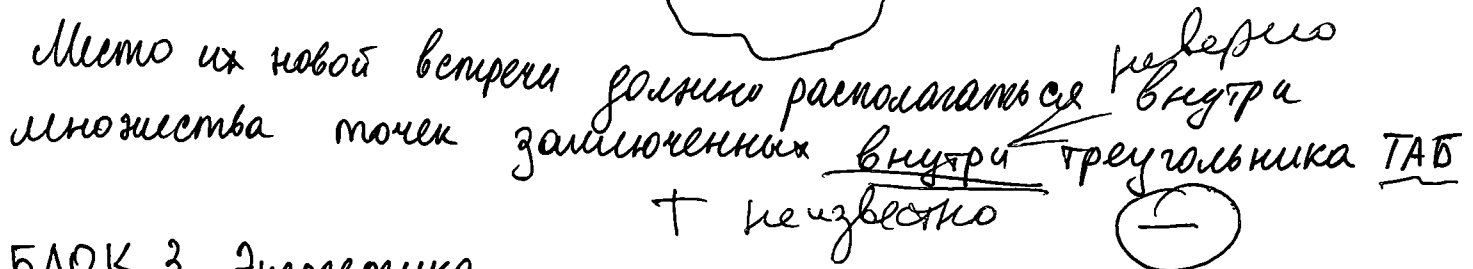 неверно
Место их новой встречи должно располагаться внутри
множества точек заключенных внутри треугольника ТАБ
Т неизвестно
БЛОК 3